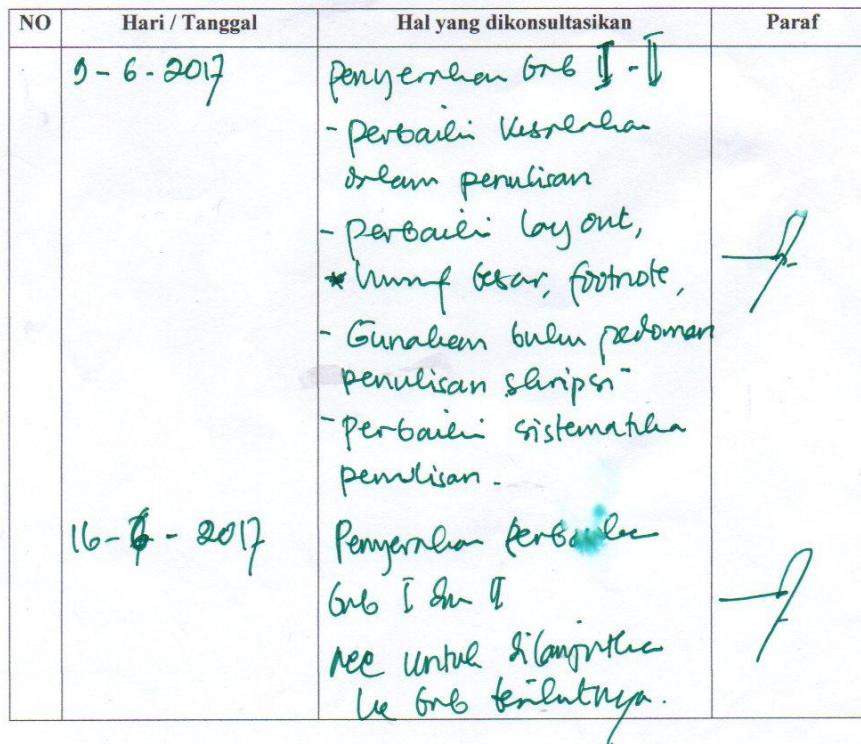 NO Hari / Tanggal Hal yang dikonsultasikan Paraf
9-6-2017 Penyerahan Bab I - II
- Perbaiki kesalahan
dalam penulisan
- Perbaiki layout,
* huruf besar, footnote,
- Gunakan buku pedoman
penulisan skripsi
- Perbaiki sistematika
penulisan.
16-6-2017 Penyerahan perbaikan
Bab I dan II
Acc untuk dilanjutkan
ke Bab berikutnya.